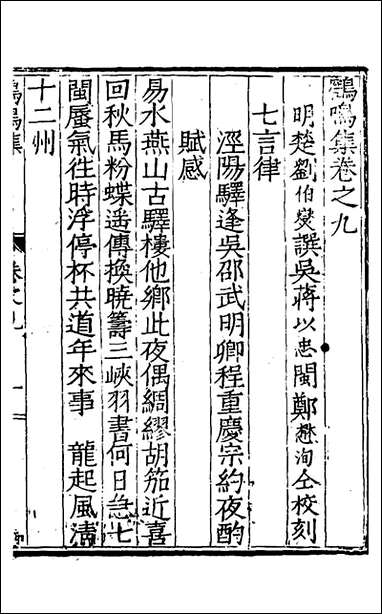 鷃鳴集卷之九
明楚劉伯燮譔吳蔣以忠閩鄭懋洵仝校刻
七言律
涇陽驛逢吳邵武明卿程重慶宗約夜酌
賦感
易水燕山古驛樓他鄉此夜偶綢繆胡笳近喜
回秋馬粉蝶遥傳換曉籌三峽羽書何日急七
閩蜃氣徃時浮停杯共道年來事 龍起風淸
十二州
卷之九